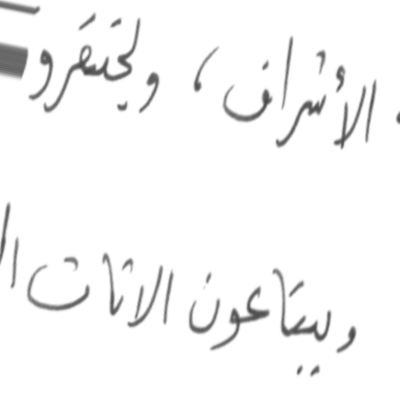 الأشراف، وليحتقروا
ويبتاعون الاثاث